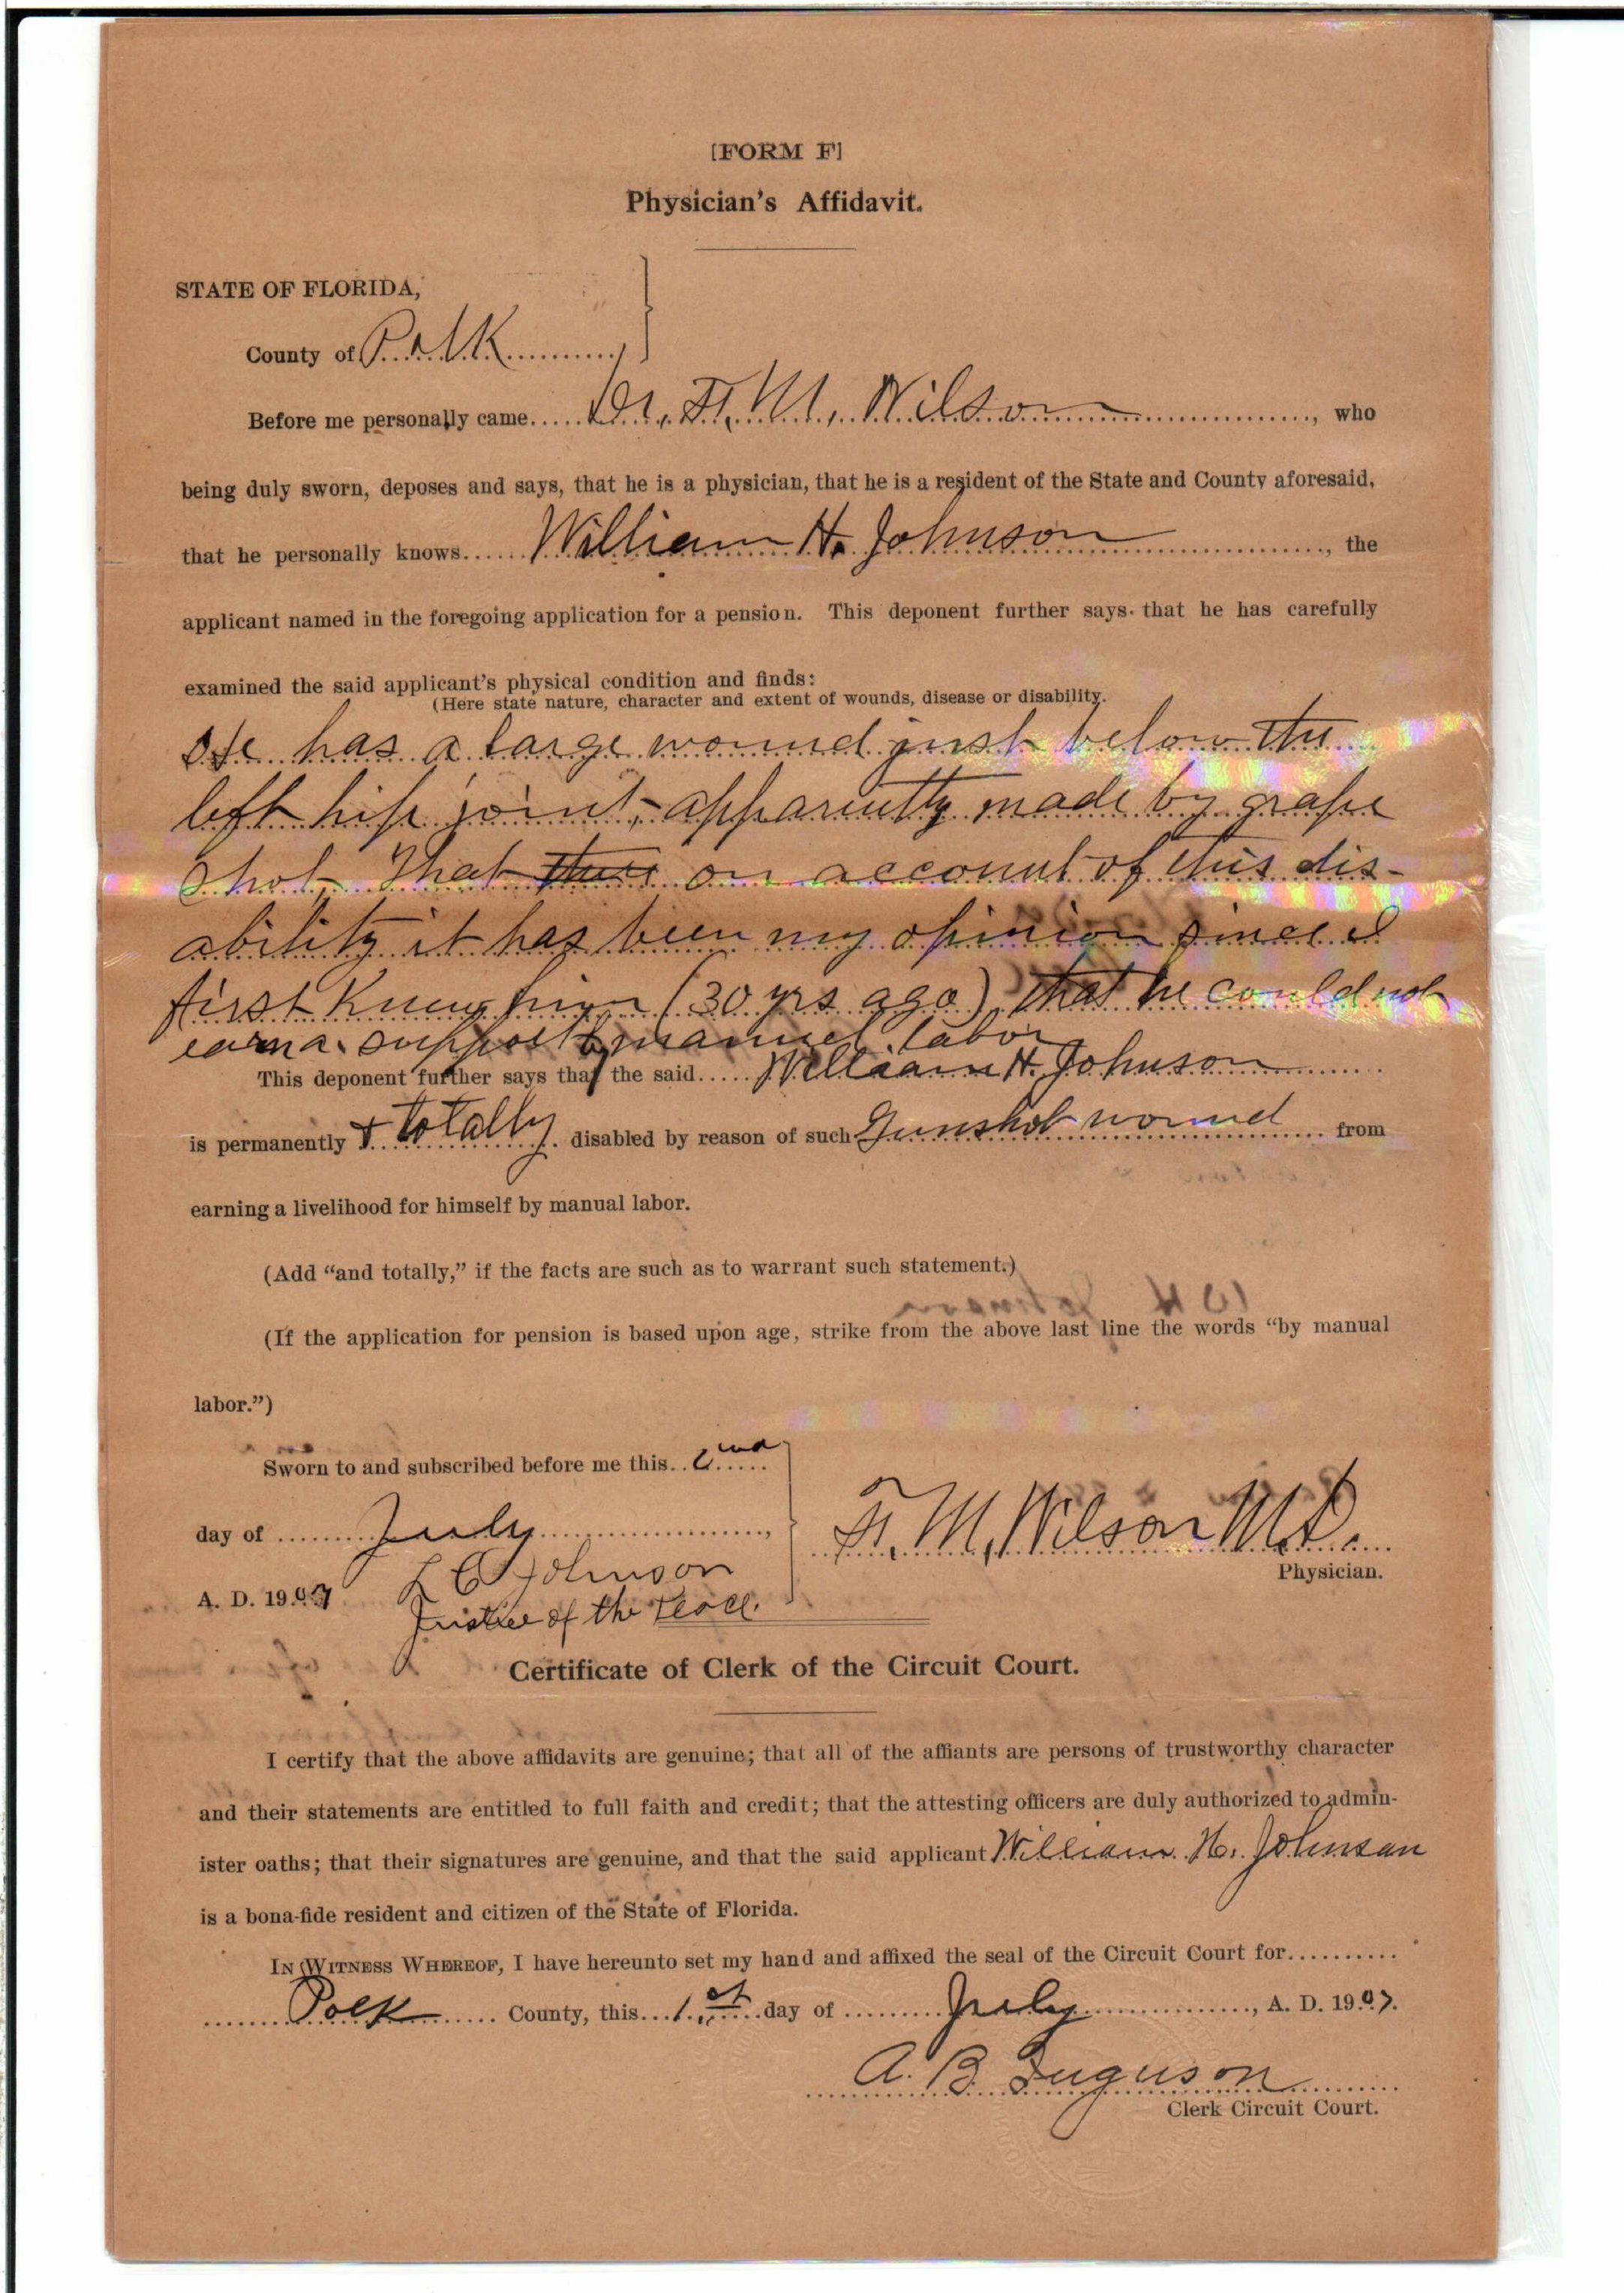 [FORM F]
Physician's Affidavit.
STATE OF FLORIDA,
County of Polk
Before me personally came Dr. F. M. Wilson, who
being duly sworn, deposes and says, that he is a physician, that he is a resident of the State and County aforesaid,
that he personally knows William H. Johnson, the
applicant named in the foregoing application for a pension. This deponent further says that he has carefully
examined the said applicant's physical condition and finds:
(Here state nature, character and extent of wounds, disease or disability.
He has a large wound just below the
left hip joint, apparently made by grape
shot, That on account of this dis-
ability it has been my opinion since I
first knew him (30 yrs ago), that he could not
earn a support by manuel labor
This deponent further says that the said William H. Johnson
is permanently & totally disabled by reason of such Gunshot wound from
earning a livelihood for himself by manual labor.
(Add "and totally," if the facts are such as to warrant such statement.)
(If the application for pension is based upon age, strike from the above last line the words "by manual
labor.")
Sworn to and subscribed before me this 2nd
day of July,
A. D. 1907
L C Johnson
Justice of the Peace.
F. M. Wilson M.D.
Physician.
Certificate of Clerk of the Circuit Court.
I certify that the above affidavits are genuine; that all of the affiants are persons of trustworthy character
and their statements are entitled to full faith and credit; that the attesting officers are duly authorized to admin-
ister oaths; that their signatures are genuine, and that the said applicant William H. Johnson
is a bona-fide resident and citizen of the State of Florida.
IN WITNESS WHEREOF, I have hereunto set my hand and affixed the seal of the Circuit Court for
Polk County, this 1st day of July, A. D. 1907.
A. B. Fuguson
Clerk Circuit Court.